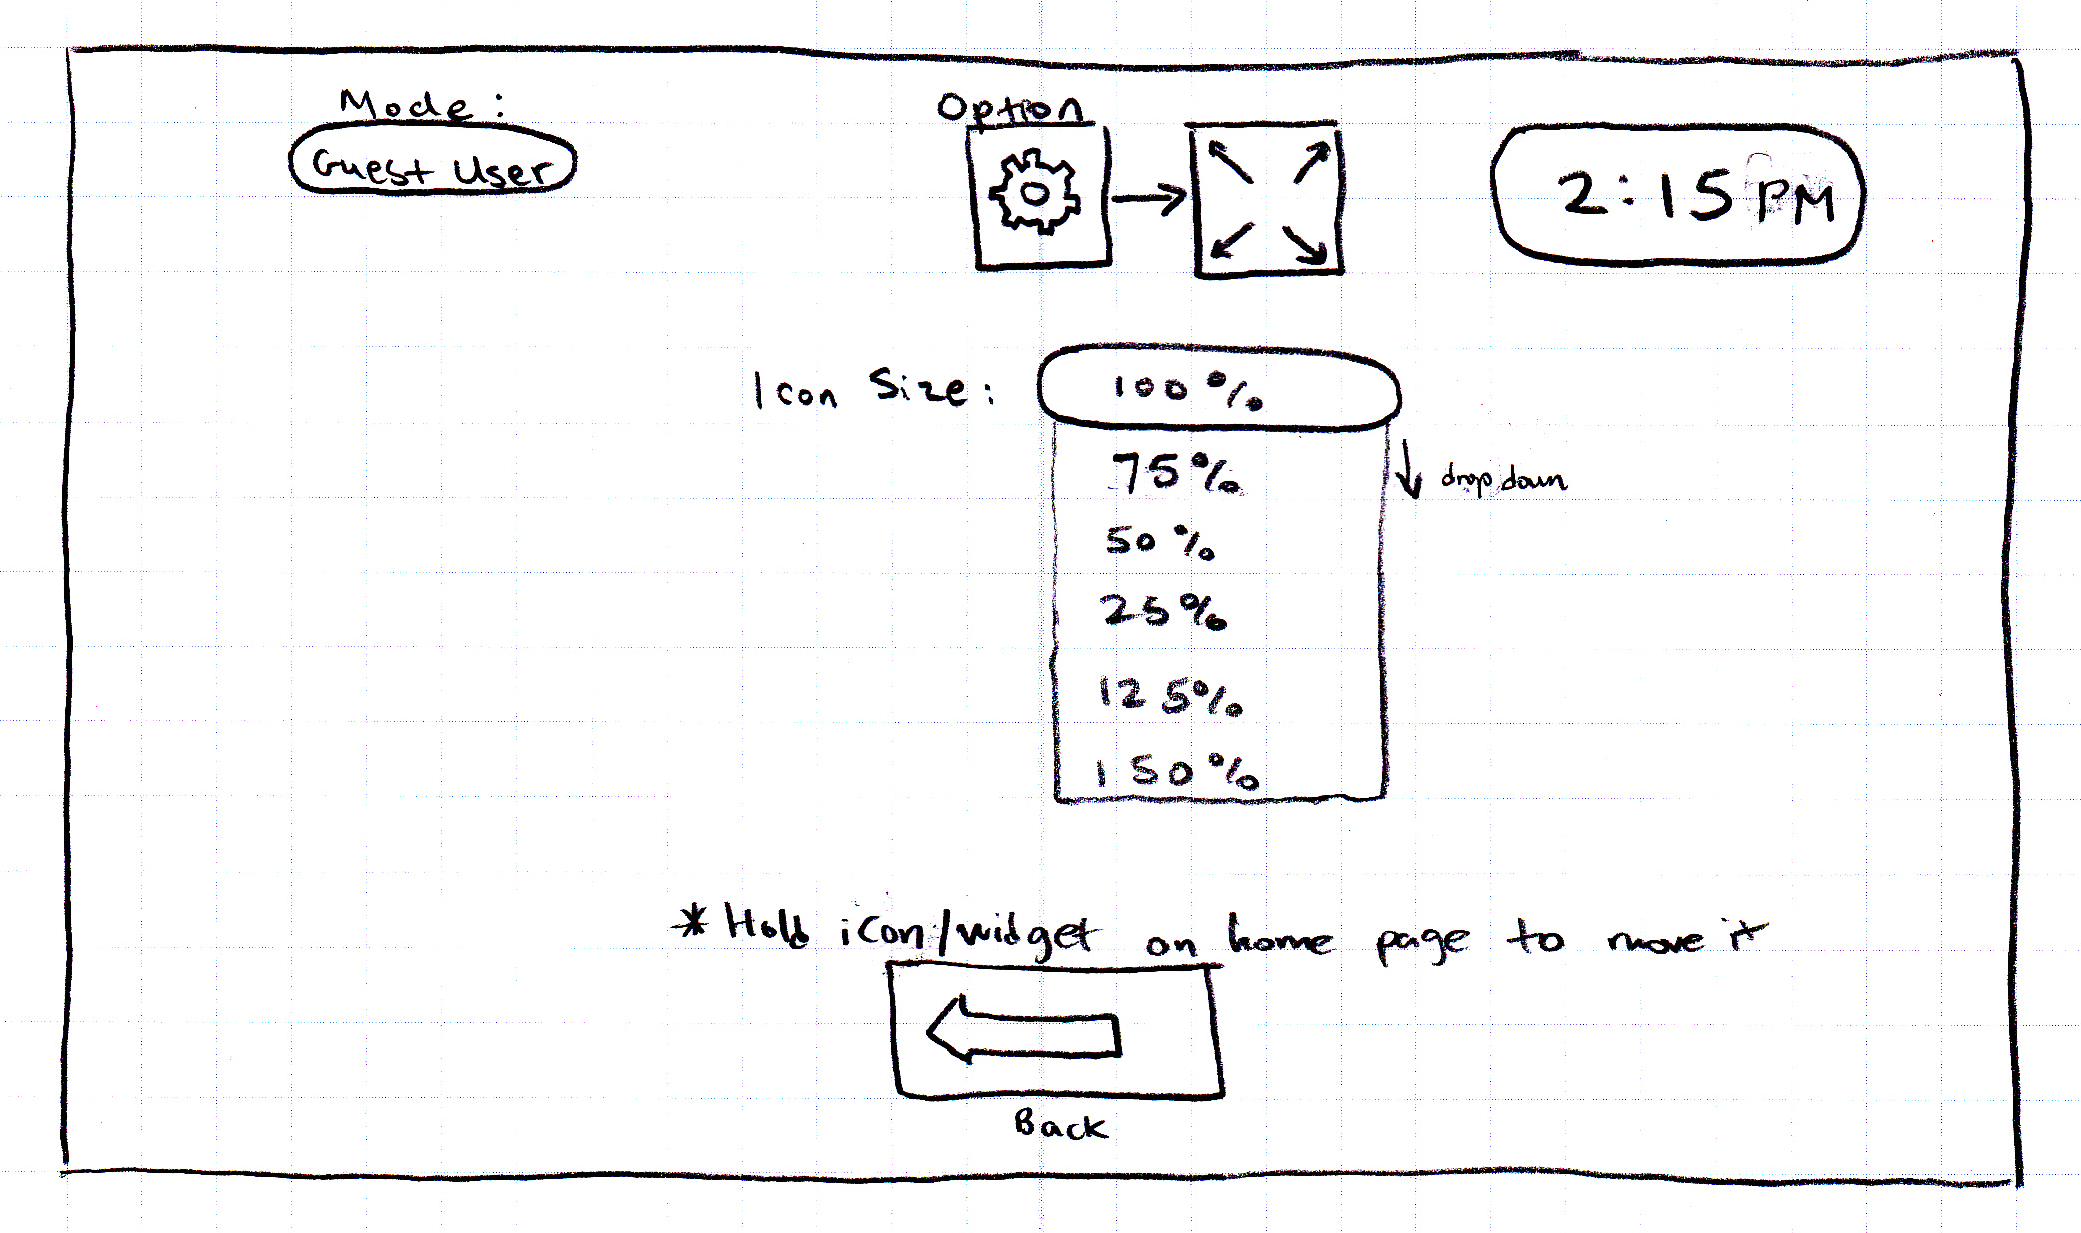 Mode:
Guest User
Option
2:15 PM
Icon Size:
100%
75%
drop down
50%
25%
125%
150%
* Hold icon/widget on home page to move it
Back